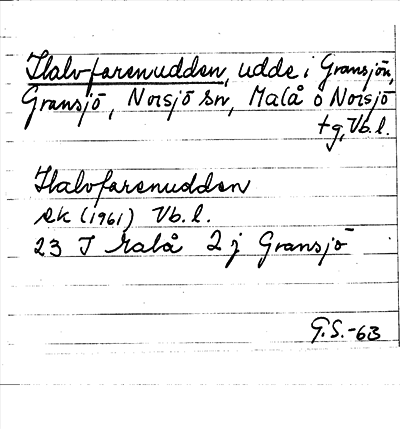 Halvfarenudden, udde i Gransjön,
Gransjö, Norsjö sn, Malå o Norsjö
tg, Vb.l.
Halvfarenudden
ek (1961) Vb.l.
23 I Malå 2 j Gransjö
G.S.-63